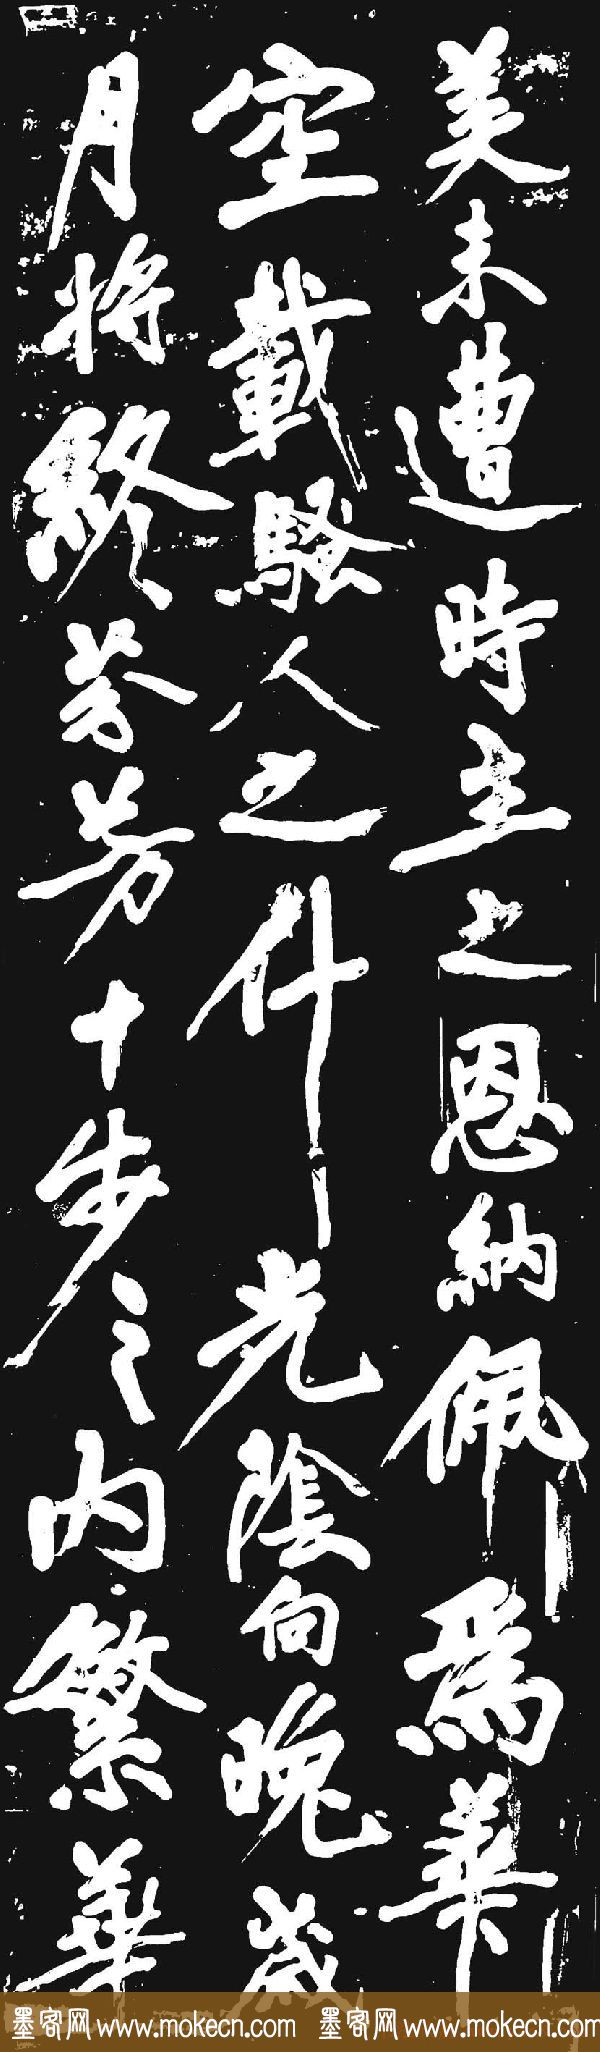 美未遭時主之恩納佩為華
空載騷人之什光陰向晚歲
月將終芬芳十步之內繁華
墨客网 www.mokecn.com 墨客网 www.mokecn.com